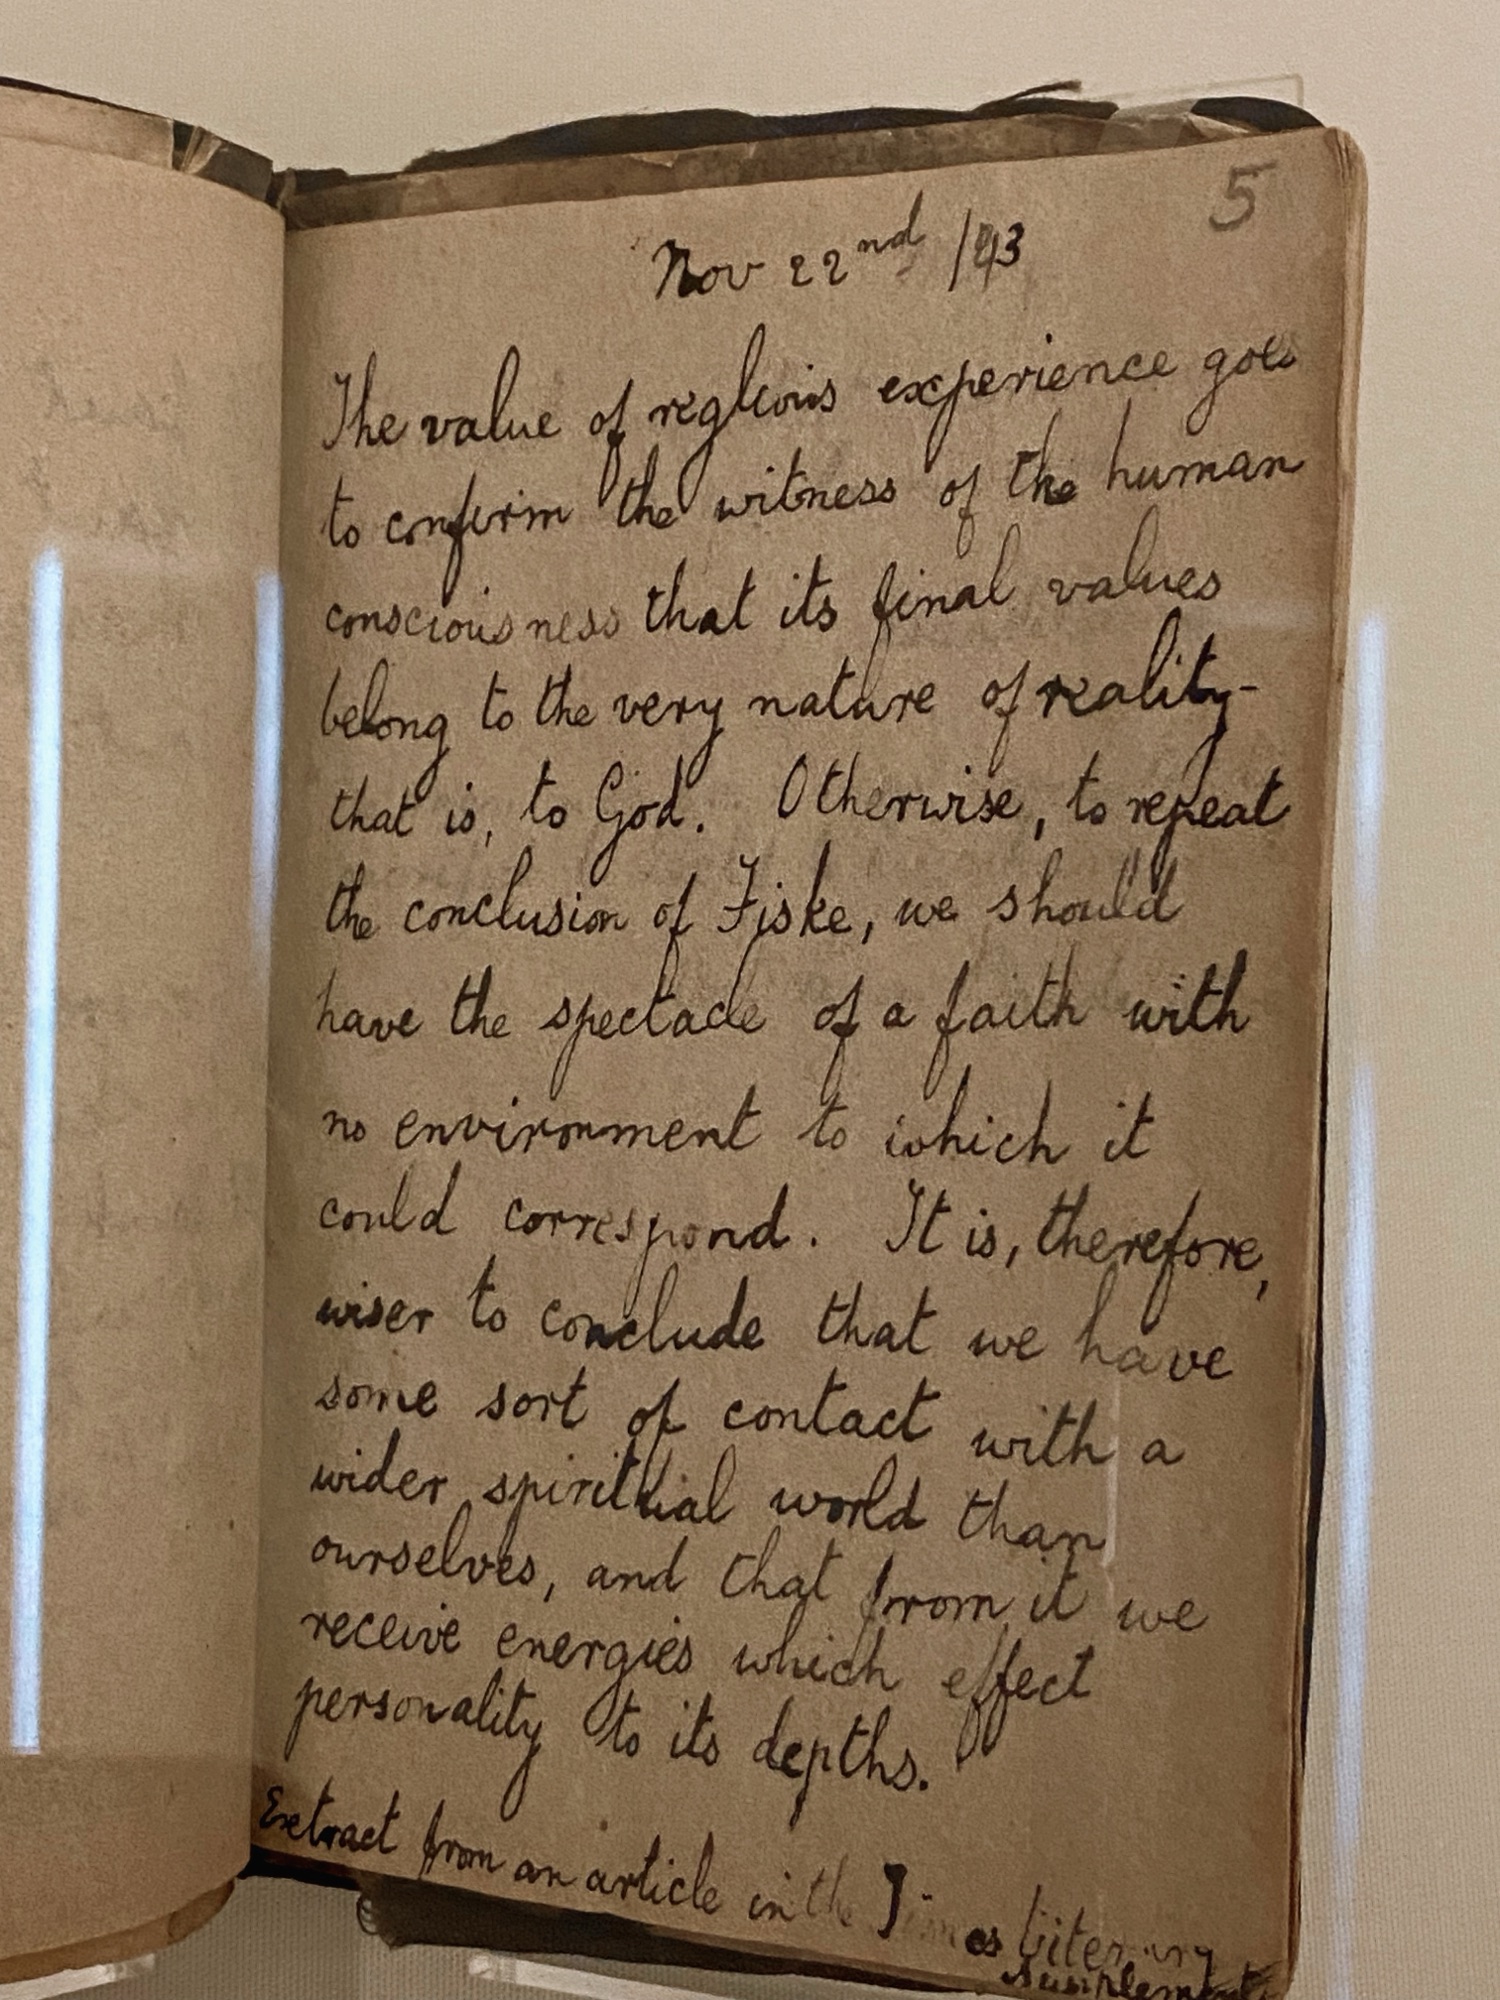 5
Nov 22nd /43
The value of reglious experience goes
to confirm the witness of the human
consciousness that its final values
belong to the very nature of reality-
that is, to God. Otherwise, to repeat
the conclusion of Fiske, we should
have the spectacle of a faith with
no environment to which it
could correspond. It is, therefore,
wiser to conclude that we have
some sort of contact with a
wider spiritual world than
ourselves, and that from it we
receive energies which effect
personality to its depths.
Extract from an article in the Times Literary
Supplement